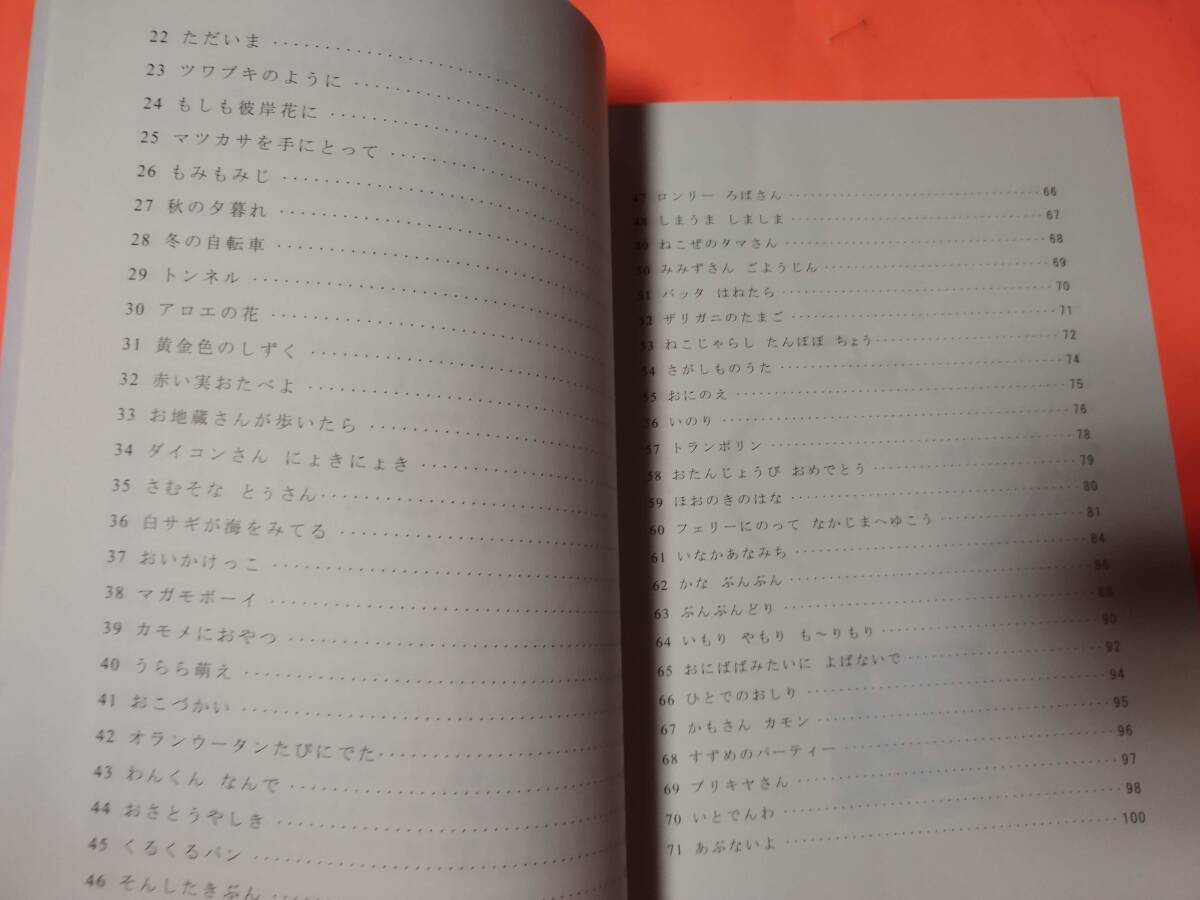 22 ただいま
23 ツワブキのように
24 もしも彼岸花に
25 マツカサを手にとって
26 もみもみじ
27 秋の夕暮れ
28 冬の自転車
29 トンネル
30 アロエの花
31 黄金色のしずく
32 赤い実おたべよ
33 お地蔵さんが歩いたら
34 ダイコンさん にょきにょき
35 さむそな とうさん
36 白サギが海をみてる
37 おいかけっこ
38 マガモボーイ
39 カモメにおやつ
40 うらら萌え
41 おこづかい
42 オランウータンたびにでた
43 わんくん なんで
44 おさとうやしき
45 くるくるパン
46 そんしたきぶん
47 ロンリー ろばさん 66
48 しまうま しましま 67
49 ねこぜのタマさん 68
50 みみずさん ごようじん 69
51 バッタ はねたら 70
52 ザリガニのたまご 71
53 ねこじゃらし たんぽぽ ちょう 72
54 さがしものうた 74
55 おにのえ 75
56 いのり 76
57 トランポリン 78
58 おたんじょうび おめでとう 79
59 ほおのきのはな 80
60 フェリーにのって なかじまへゆこう 81
61 いなかあなみち 84
62 かな ぶんぶん 86
63 ぶんぶんどり 88
64 いもり やもり も〜りもり 90
65 おにばばみたいに よばないで 92
66 ひとでのおしり 94
67 かもさん カモン 95
68 すずめのパーティー 96
69 ブリキヤさん 97
70 いとでんわ 98
71 あぶないよ 100